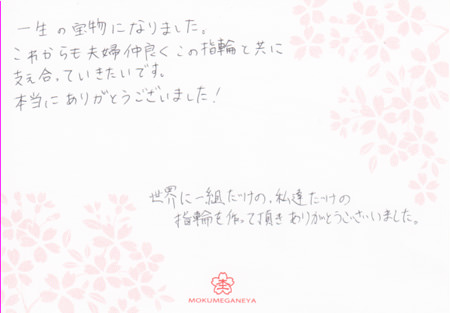 一生の宝物になりました。
これからも夫婦仲良くこの指輪と共に
支え合っていきたいです。
本当にありがとうございました!
世界に一組だけの、私達だけの
指輪を作って頂きありがとうございました。
MOKUMEGANEYA